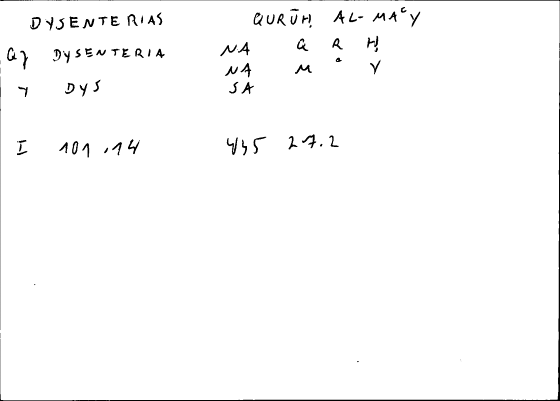 DYSENTERIAS QURŪḤ AL-MAʿY
Q7 DYSENTERIA NA Q R Ḥ
NA M ʿ Y
7 DYS SA
I 101,14 4/5 27.2